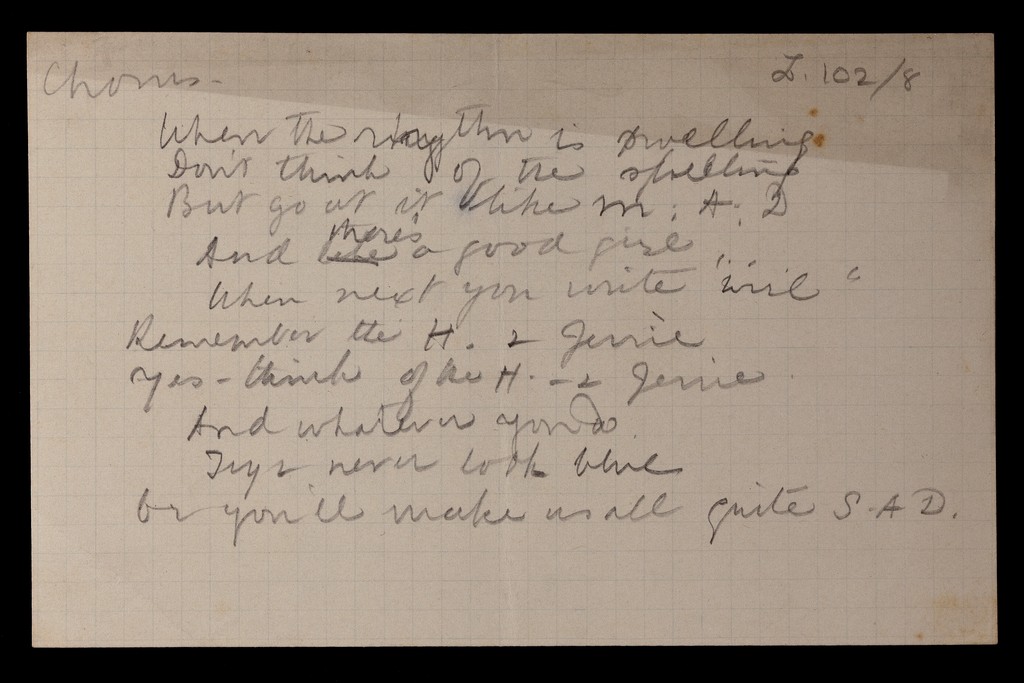 Chorus -
L. 102/8
When the rhythm is swelling
Don't think of the spelling
But go at it like M. A. D
And there's a good girl
When next you write "wil"
Remember the H. & Jennie
Yes - think of the H. - & Jennie
And whatever you do
Try & never look blue
Or you'll make us all quite S-A-D.